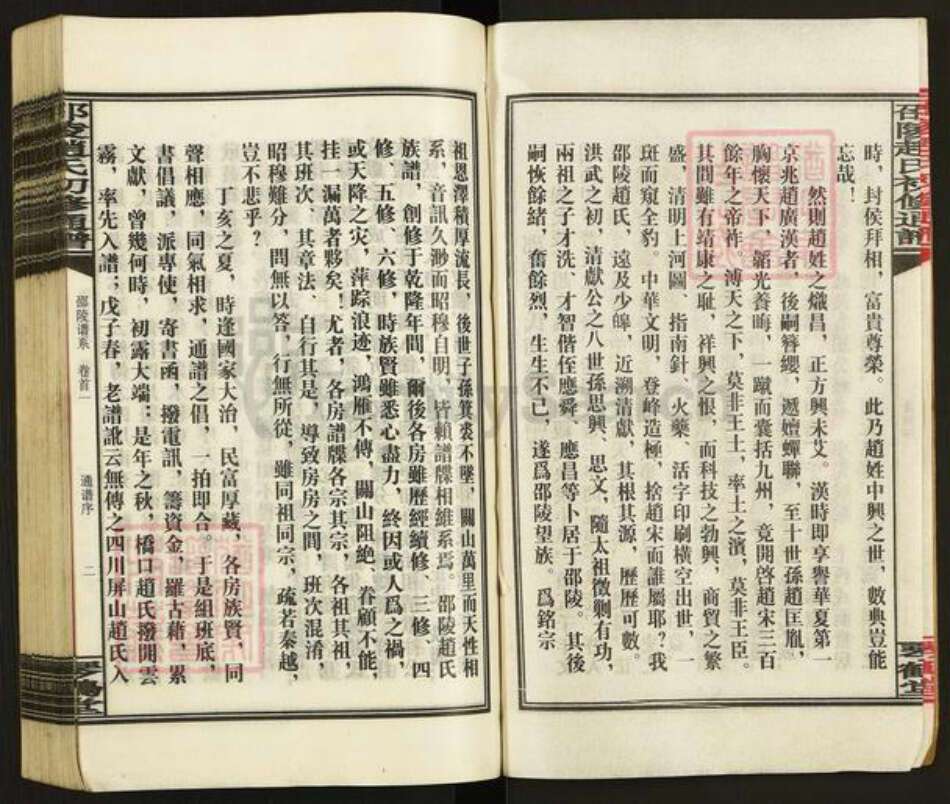 邵陵趙氏初修通譜
時，封侯拜相，富貴尊榮。此乃趙姓中興之世，數典豈能
忘哉！
然則趙姓之熾昌，正方興未艾。漢時即享譽華夏第一
京兆趙廣漢者，後嗣簪纓，遞嬗蟬聯，至十世孫趙匡胤，
胸懷天下，韜光養晦，一蹴而囊括九州，竟開啓趙宋三百
餘年之帝祚。溥天之下，莫非王土，率土之濱，莫非王臣。
其間雖有靖康之耻，祥興之恨，而科技之勃興，商貿之繁
盛，清明上河圖、指南針、火藥、活字印刷橫空出世，一
斑而窺全豹。中華文明，登峰造極，捨趙宋而誰屬耶？我
邵陵趙氏，遠及少皞，近溯清獻，其根其源，歷歷可數。
洪武之初，清獻公之八世孫思興、思文，隨太祖徵剿有功，
兩祖之子才洗、才智偕侄應舜、應昌等卜居于邵陵。其後
嗣恢餘緒，奮餘烈，生生不已，遂爲邵陵望族。爲銘宗
琴鶴堂
祖恩澤積厚流長，後世子孫箕裘不墜，關山萬里而天性相
系，音訊久渺而昭穆自明，皆賴譜牒相維系焉。邵陵趙氏
族譜，創修于乾隆年間，爾後各房雖歷經續修、三修、四
修、五修、六修，時族賢雖悉心盡力，終因或人爲之禍，
或天降之灾，萍踪浪迹，鴻雁不傳，關山阻絶，眷顧不能，
挂一漏萬者夥矣！尤者，各房譜牒各宗其宗，各祖其祖，
其班次、其章法、自行其是，導致房房之間，班次混淆，
昭穆難分，問無以答，行無所從，雖同祖同宗，疏若秦越，
豈不悲乎？
丁亥之夏，時逢國家大治，民富厚藏，各房族賢，同
聲相應，同氣相求，通譜之倡，一拍即合。于是組班底，
書倡議，派專使，寄書函，撥電訊，籌資金，羅古藉，累
文獻，曾幾何時，初露大端；是年之秋，橋口趙氏撥開雲
霧，率先入譜；戊子春，老譜訛云無傳之四川屏山趙氏入
邵陵趙氏初修通譜
邵陵谱系 卷首一
通谱序 二
琴鶴堂